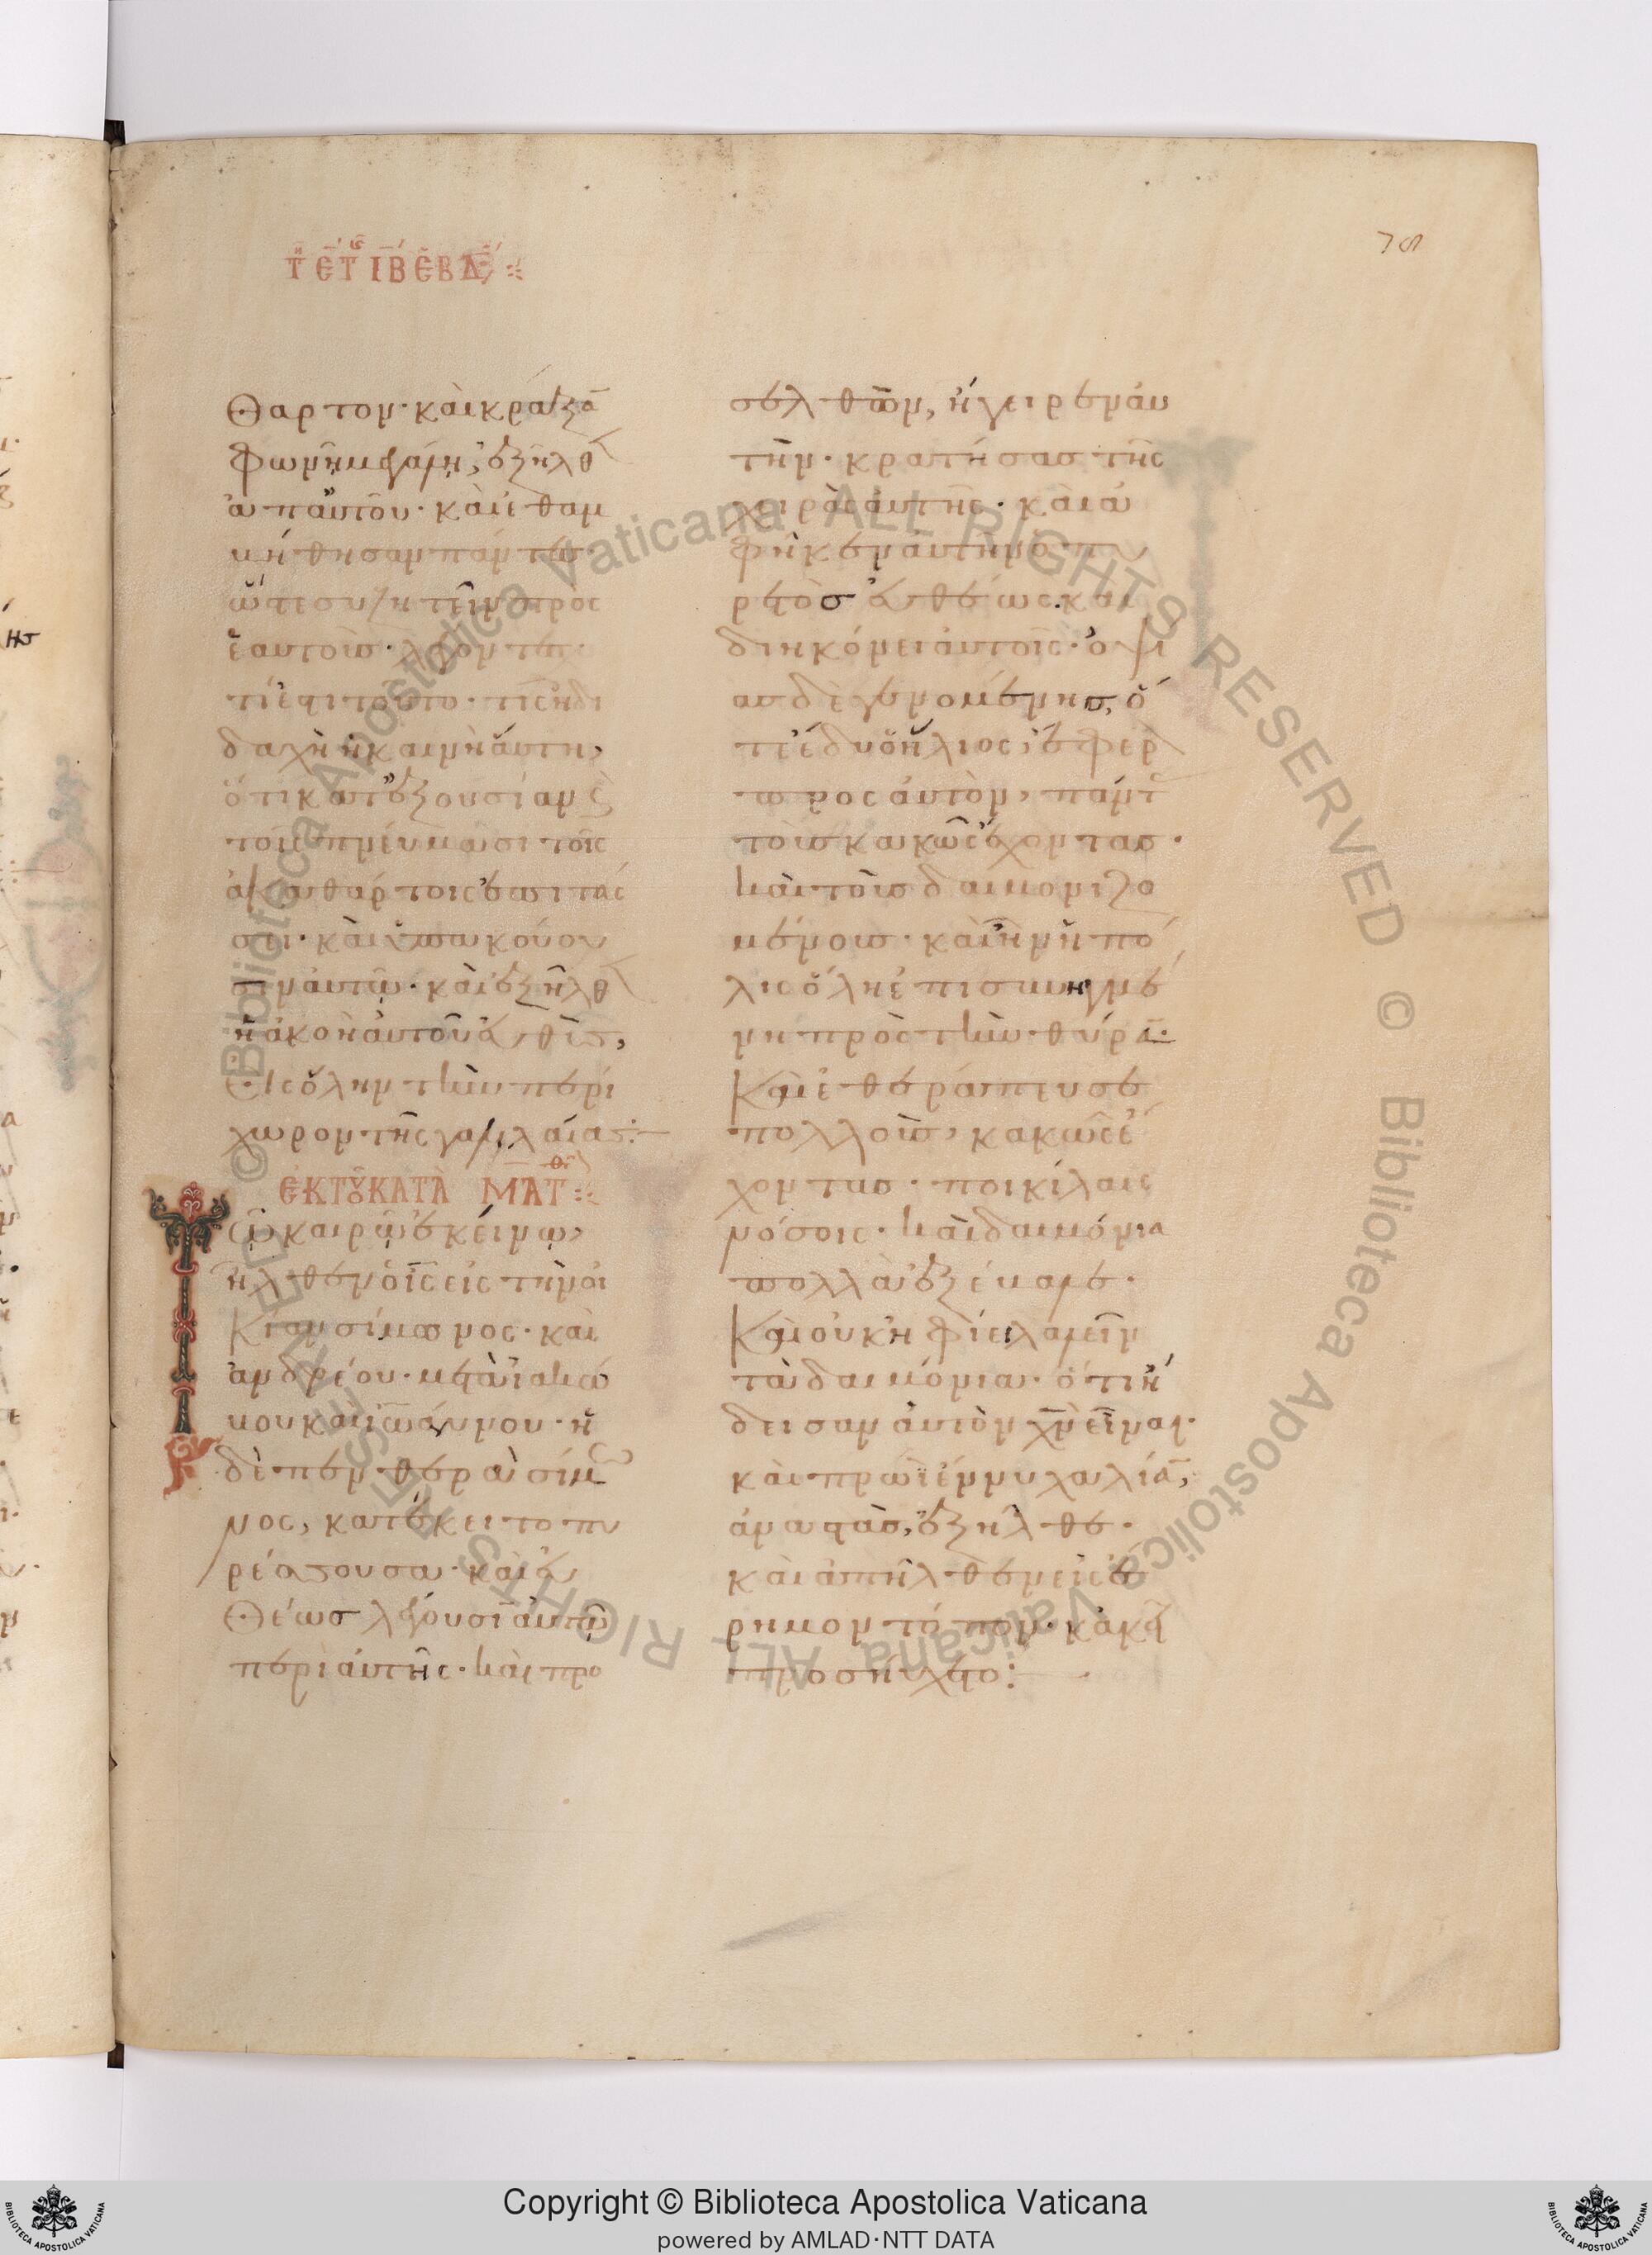 τῇ ε̄ τῆς ῑβ ἑβδ
76
θαρτον· καὶ κράξᾱ
φωνῇ μεγάλη, ἐξῆλθ
ἀπ αὐτοῦ· καὶ ἐθαμ
βήθησαν πάντες·
ὥστε συζητεῖν πρὸς
ἑαυτοὺς λέγοντας·
τί ἐστι τοῦτο· τίς ἡ δι
δαχὴ ἡ καινὴ αὕτη,
ὅτι κατ ἐξουσίαν ϗ
τοῖς πνεύμασι τοῖς
ἀκαθάρτοις ἐπιτάσ
σει· καὶ ὑπακούου
σιν αὐτῶ· καὶ ἐξῆλθ
ἡ ἀκοὴ αὐτοῦ εὐθὺς,
εἰς ὅλην τὴν περί
χωρον τῆς γαλιλαίας:
ἐκ τοῦ κατὰ Ματθ
Τῷ καιρῷ ἐκείνῳ,
ἦλθεν ὁ ῑς̄ εἰς τὴν οἰ
κίαν σίμωνος· καὶ
ἀνδρέου· μετὰ ἰακώ
βου καὶ ἰωάννου· ἡ
δὲ πενθερὰ σίμω
νος, κατέκειτο πυ
ρέσσουσα· καὶ εὐ
θέως λέγουσιν αὐτῷ
περὶ αὐτῆς· καὶ προ
σελθὼν, ἤγειρεν αὐ
τὴν· κρατήσας τῆς
χειρὸς αὐτῆς· καὶ ἀ
φῆκεν αὐτὴν ὁ πυ
ρετὸς εὐθέως· καὶ
διηκόνει αὐτοῖς· ὀψί
ας δὲ γενομένης, ὅ
τε ἔδυ ὁ ἥλιος, ἔφερ
πρὸς αὐτὸν, πάντ
τοὺς κακῶς ἔχοντας·
καὶ τοὺς δαιμονιζο
μένους· καὶ ἦν ἡ πό
λις ὅλη ἐπισυνηγμέ
νη πρὸς τὴν θύρᾱ·
Καὶ ἐθεράπευσε
πολλοὺς, κακῶς ἔ
χοντας· ποικίλαις
νόσοις· καὶ δαιμόνια
πολλὰ ἐξέβαλε·
Καὶ οὐκ ἤφιει λαλεῖν
τὰ δαιμόνια· ὅτι ᾔ
δεισαν αὐτὸν χ̄ν̄ εἶναι·
καὶ πρωῒ ἔννυχα λίᾱ,
ἀναστὰς, ἐξῆλθε·
καὶ ἀπῆλθεν εἰς ἔ
ρημον τόπον· κἀκεῖ
προσηύχετο:
Copyright © Biblioteca Apostolica Vaticana
powered by AMLAD·NTT DATA
© Biblioteca Apostolica Vaticana ALL RIGHTS RESERVED
© Biblioteca Apostolica Vaticana ALL RIGHTS RESERVED
BIBLIOTECA APOSTOLICA VATICANA
BIBLIOTECA APOSTOLICA VATICANA